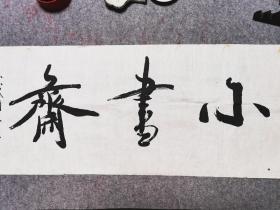 小書齋